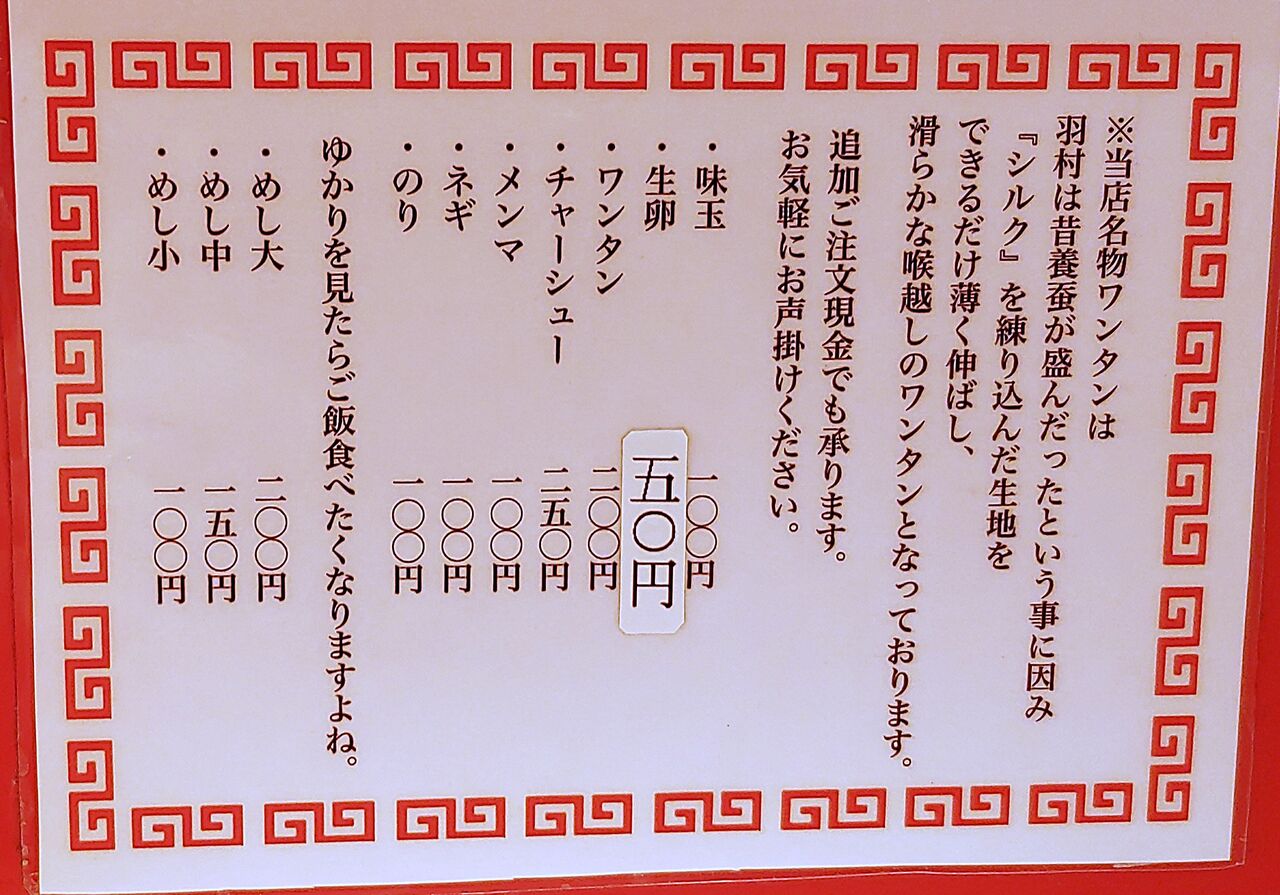 ※当店名物ワンタンは
羽村は昔養蚕が盛んだったという事に因み
『シルク』を練り込んだ生地を
できるだけ薄く伸ばし、
滑らかな喉越しのワンタンとなっております。
追加ご注文現金でも承ります。
お気軽にお声掛けください。
・味玉 一〇〇円
・生卵 五〇円
・ワンタン 二〇〇円
・チャーシュー 二五〇円
・メンマ 一〇〇円
・ネギ 一〇〇円
・のり 一〇〇円
ゆかりを見たらご飯食べたくなりますよね。
・めし大 二〇〇円
・めし中 一五〇円
・めし小 一〇〇円